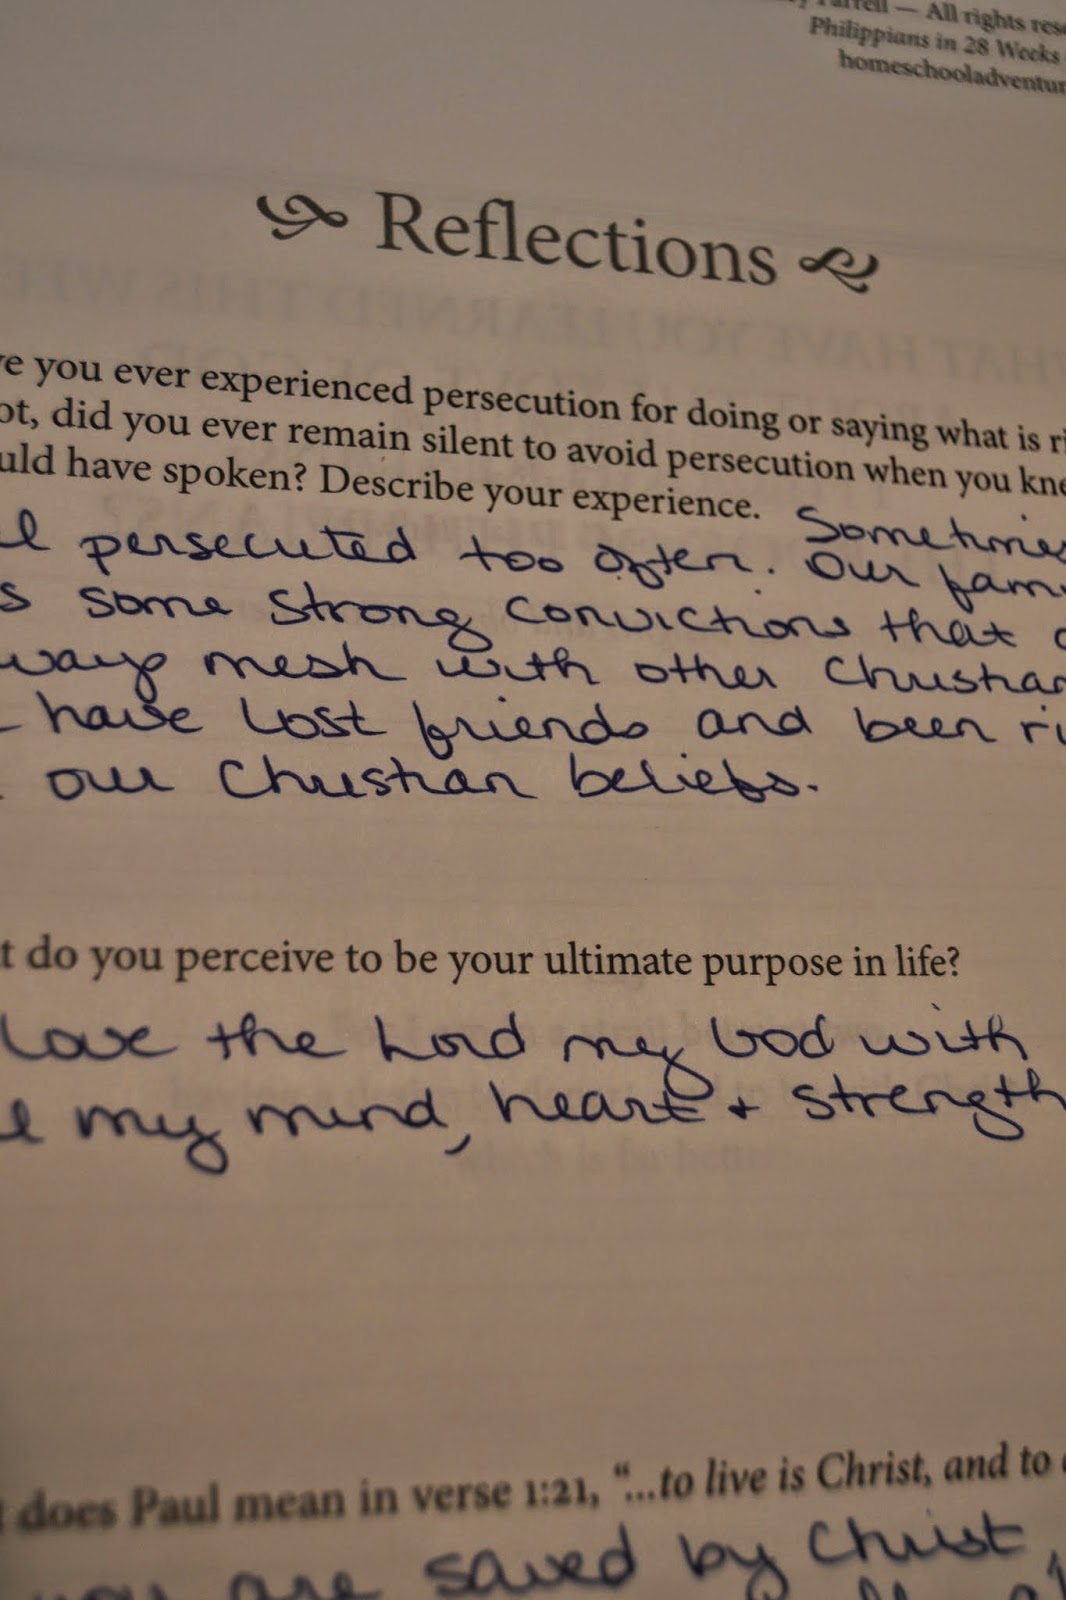 Farrell — All rights rese
Philippians in 28 Weeks
homeschooladventur
Reflections
ve you ever experienced persecution for doing or saying what is ri
ot, did you ever remain silent to avoid persecution when you kne
uld have spoken? Describe your experience.
el persecuted too often. Sometimes
s some strong convictions that Our fami
ways mesh with other Christian
have lost friends and been ri
our Christian beliefs.
t do you perceive to be your ultimate purpose in life?
love the Lord my God with
l my mind, heart + strength
t does Paul mean in verse 1:21, “...to live is Christ, and to
you are saved by Christ,